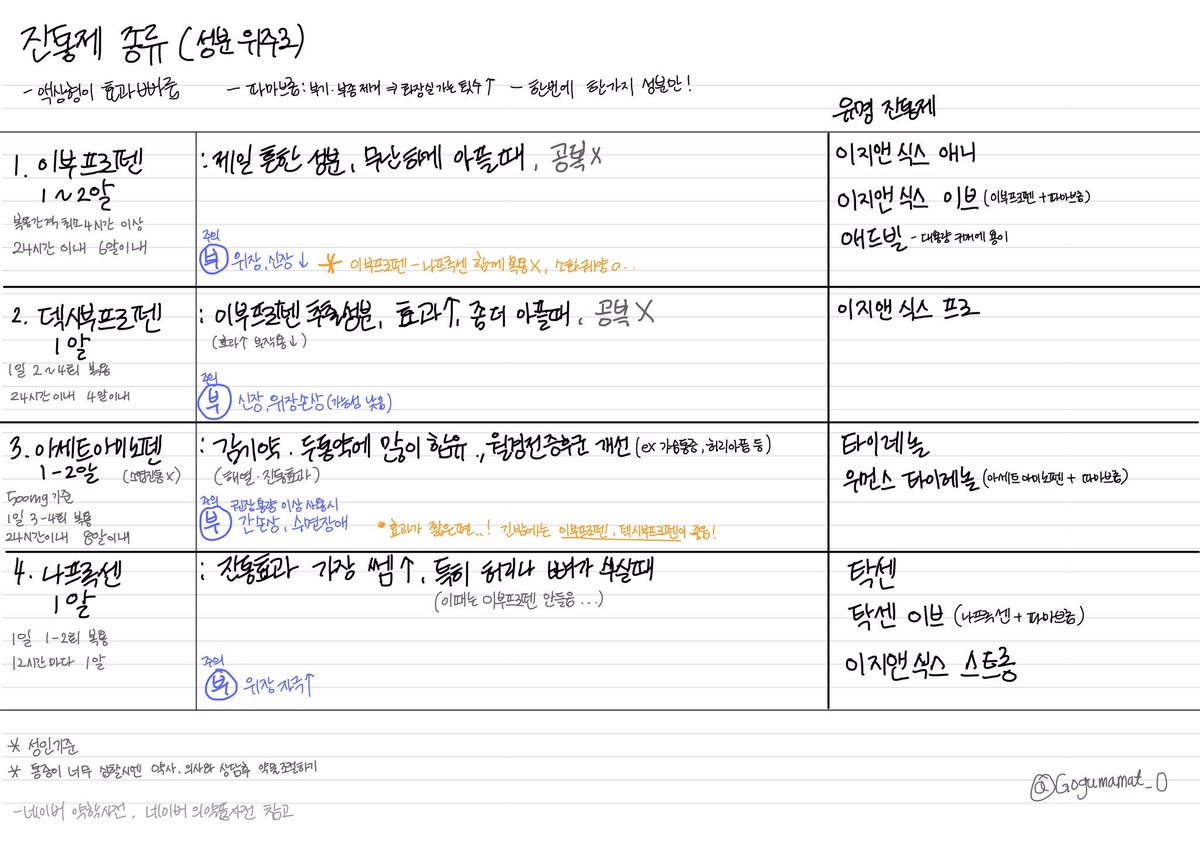 진통제 종류 (성분 위주로)
- 액상형이 효과 빠름 - 파마브롬: 붓기·부종제거 ⇒ 화장실 가는 횟수↑ - 한번에 한가지 성분만!
유명 진통제
1. 이부프로펜
1~2알
복용간격 최소 4시간 이상
24시간 이내 6알이내
: 제일 흔한 성분, 무난하게 아플때, 공복X
주의
부 위장, 신장↓ * 이부프로펜-나프록센 함께 복용X, 소화궤양o..
이지앤식스 애니
이지앤식스 이브 (이부프로펜+파마브롬)
애드빌 - 대용량 구매에 용이
2. 덱시부프로펜
1알
1일 2~4회 복용
24시간이내 4알이내
: 이부프로펜 추출성분, 효과↑, 좀더 아플때, 공복X
(효과↑ 부작용↓)
주의
부 신장, 위장손상 (가능성 낮음)
이지앤식스 프로
3. 아세트아미노펜
1-2알 (소염진통X)
500mg 기준
1일 3-4회 복용
24시간이내 8알이내
: 감기약·두통약에 많이 함유, 월경전증후군 개선 (ex 가슴통증, 허리아픔 등)
(해열·진통효과)
주의 권장용량 이상 사용시
부 간손상, 수면장애 • 효과가 짧은편..! 긴밤에는 이부프로펜, 덱시부프로펜이 좋음!
타이레놀
우먼스 타이레놀 (아세트아미노펜 + 파마브롬)
4. 나프록센
1알
1일 1-2회 복용
12시간마다 1알
: 진통효과 가장 쎔↑, 특히 허리나 뼈가 쑤실때
(이때는 이부프로펜 안들음...)
주의
부 위장 자극↑
탁센
탁센 이브 (나프록센+파마브롬)
이지앤식스 스트롱
* 성인기준
* 통증이 너무 심할시엔 약사·의사와 상담후 약물조절하기
@Gogumamat_0
-네이버 약학사전, 네이버 의약품사전 참고